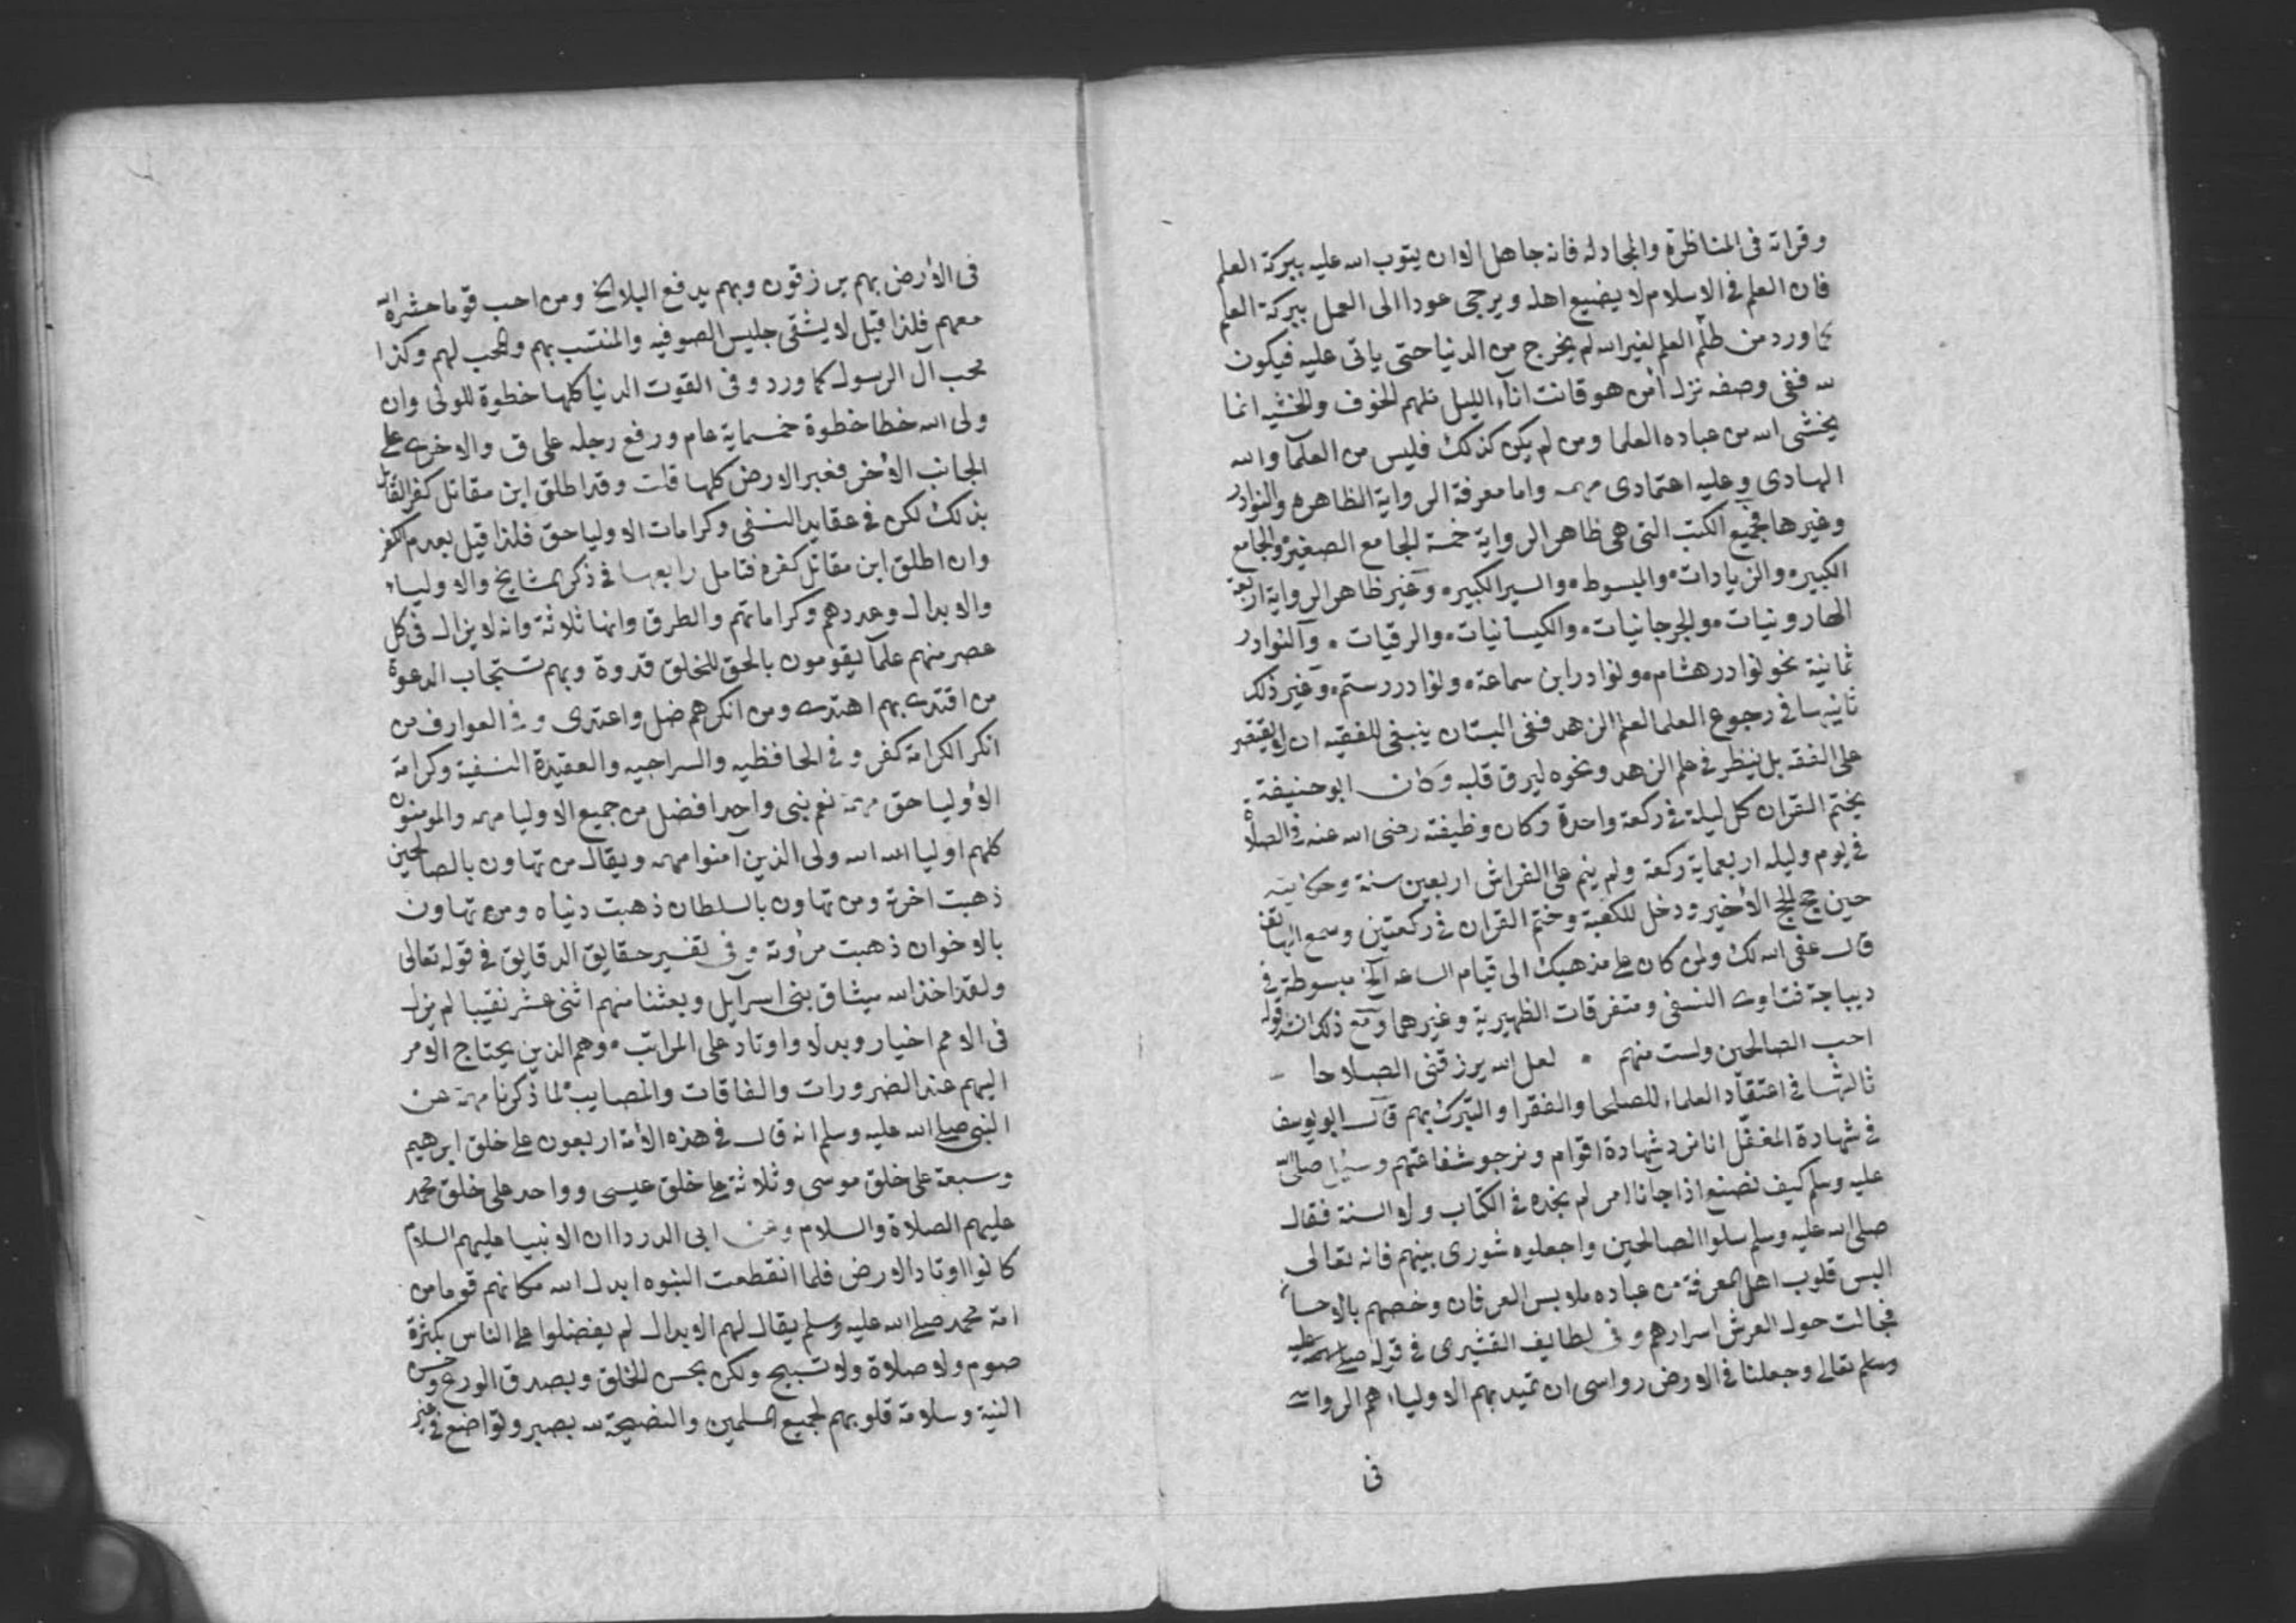 وقراته فى المناظرة والمجادله فانه جاهل الا ان يتوب الله عليه ببركة العلم
فان العلم فى الاسلام لا يضيع اهله ويرجى عودا الى العمل ببركة العلم
كما ورد من طلب العلم لغير الله لم يخرج من الدنيا حتى ياتى عليه فيكون
لله ففى وصفه نزل أمن هو قانت اناء الليل فلهم الخوف والخشيه انما
يخشى الله من عباده العلما ومن لم يكن كذلك فليس من العلمآ والله
الهادى وعليه اعتمادى مهمه واما معرفة الرواية الظاهره والنوادر
وغيرها فجميع الكتب التى هى ظاهر الرواية خمسة الجامع الصغير والجامع
الكبير والزيادات والمبسوط والسير الكبير وغير ظاهر الرواية اربعة
الهارونيات والجرجانيات والكيسانيات والرقيات والنوادر
ثمانية نحو نوادر هشام ونوادر ابن سماعة ونوادر رستم وغير ذلك
ثانيها فى رجوع العلما لعلم الزهد ففى البستان ينبغى للفقيه ان لا يقتصر
على الفقه بل ينظر فى علم الزهد ونحوه ليرق قلبه وكان ابو حنيفة
يختم القران كل ليلة فى ركعة واحدة وكان وظيفته رضى الله عنه فى الصلاة
فى يوم وليله اربعماية ركعة ولم ينم على الفراش اربعين سنة وحكايته
حين حج الحج الأخير ودخل للكعبة وختم القران فى ركعتين وسمع الهاتف
قال عفى الله لك ولمن كان على مذهبك الى قيام الساعه الخ مبسوطة فى
ديباجة فتاوى النسفى ومتفرقات الظهيرية وغيرهما ومع ذلك انشد قوله
احب الصالحين ولست منهم • لعل الله يرزقنى الصلاحا
ثالثها فى اعتقاد العلماء للصلحا والفقرا والتبرك بهم قال ابو يوسف
فى شهادة المغفّل انا نرد شهادة اقوام ونرجو شفاعتهم وسئل صلى الله
عليه وسلم كيف نصنع اذا جانا امر لم نجده فى الكتاب ولا السنة فقال
صلى الله عليه وسلم سلوا الصالحين واجعلوه شورى بينهم فانه تعالى
البس قلوب اهل المعرفة من عباده ملابس العرفان وخصهم بالاحسان
فجالت حول العرش اسرارهم وفى لطايف القشيرى فى قوله صلى الله عليه
وسلم تعالى وجعلنا فى الارض رواسى ان تميد بهم الاولياء هم الرواسى
فى
فى الأرض بهم يرزقون وبهم يدفع البلا الخ ومن احب قوما حشره الله
معهم فلذا قيل لا يشقى جليس الصوفيه والمنتسب بهم والمحب لهم وكذا
محب آل الرسول كما ورد وفى القوت الدنيا كلها خطوة للولى وان
ولى الله خطا خطوة خمسماية عام ورفع رجله على ق والاخرى على
الجانب الأخر فعبر الارض كلها قلت وقد اطلق ابن مقاتل كفر القائل
بذلك لكن فى عقايد النسفى وكرامات الاوليا حق فلذا قيل بعدم الكفر
وان اطلق ابن مقاتل كفره فتامل رابعها فى ذكر المشايخ والاولياء
والابدال وعددهم وكراماتهم والطرق وانها ثلاثة وانه لا يزال فى كل
عصر منهم علمآ يقومون بالحق للخلق قدوة وبهم تستجاب الدعوة
من اقتدى بهم اهتدى ومن انكرهم ضل واعتدى وفى العوارف من
انكر الكرامة كفر وفى الحافظيه والسراجيه والعقيدة النسفية وكرامة
الأوليا حق مهمة نعم نبى واحد افضل من جميع الاوليا مهمه والمومنون
كلهم اوليا الله الله ولى الذين آمنوا مهمه ويقال من تهاون بالصالحين
ذهبت اخرته ومن تهاون بالسلطان ذهبت دنياه ومن تهاون
بالاخوان ذهبت مرؤته وفى تفسير حقايق الدقايق فى قوله تعالى
ولقد اخذ الله ميثاق بنى اسرآيل وبعثنا منهم اثنى عشر نقيبا لم يزل
فى الامم اخيار وبدلا واوتاد على المراتب وهم الذين يحتاج الأمر
اليهم عند الضرورات والفاقات والمصايب لما ذكرنا مهمة عن
النبى صلى الله عليه وسلم انه قال فى هذه الأمة اربعون على خلق ابرهيم
وسبعة على خلق موسى وثلاثة على خلق عيسى وواحد على خلق محمد
عليهم الصلاة والسلام وعن ابى الدردا ان الانبيا عليهم السلام
كانوا اوتاد الارض فلما انقطعت النبوه ابدل الله مكانهم قوما من
امة محمد صلى الله عليه وسلم يقال لهم الابدال لم يفضلوا على الناس بكثرة
صوم ولا صلاة ولا تسبيح ولكن بحسن الخلق وبصدق الورع وحسن
النية وسلامة قلوبهم لجميع المسلمين والنصيحة لله بصبر وتواضع فى غير